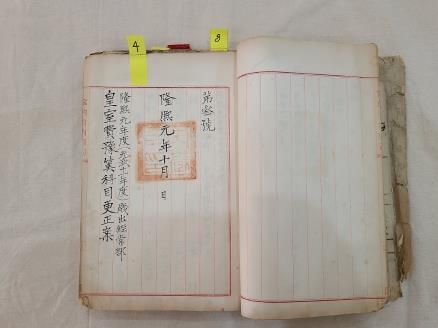 4
8
第叅號
隆熙元年十月 日
隆熙元年度(光武十一年度)歲出經常部
皇室費豫算科目更正案